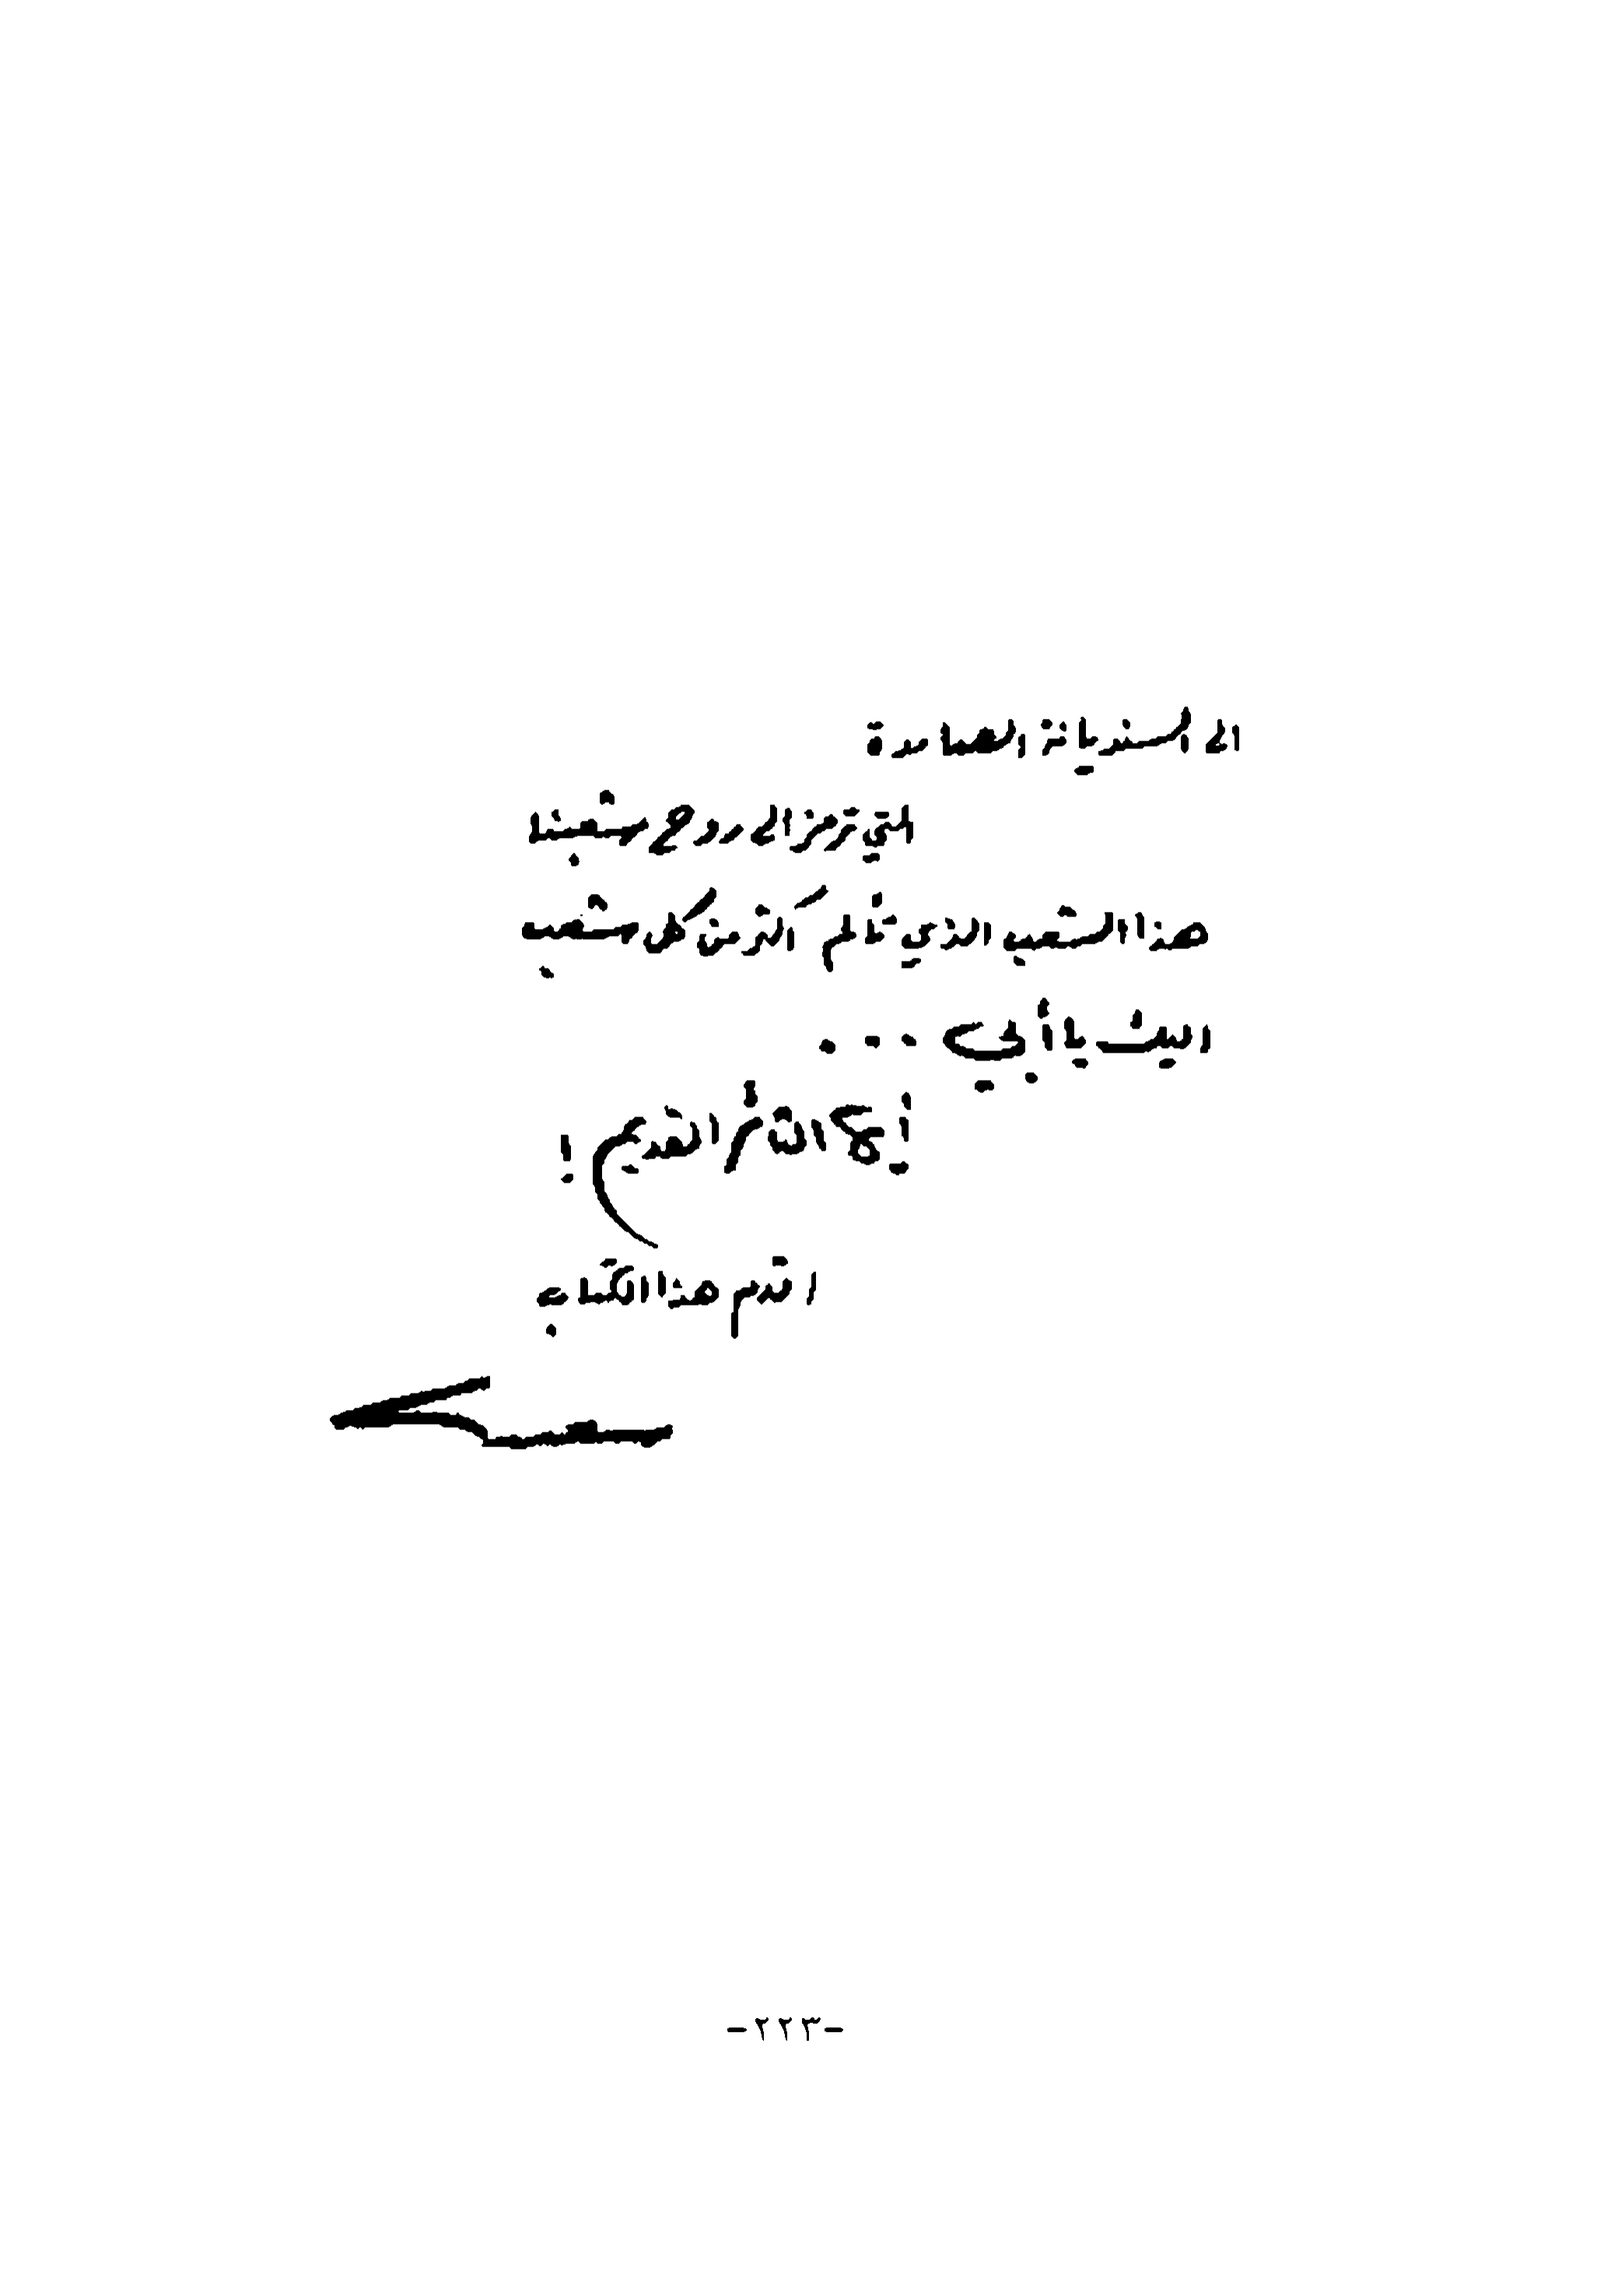 الى السنديانة الصامدة
التي ترمز الى روح شعبنا
هذا الشعب الذي تألم أكثر من كل شعب
اليك يا أبي ...
أيها الثائر القديم !
اقدم هذا الكتاب
-٢٢٣-